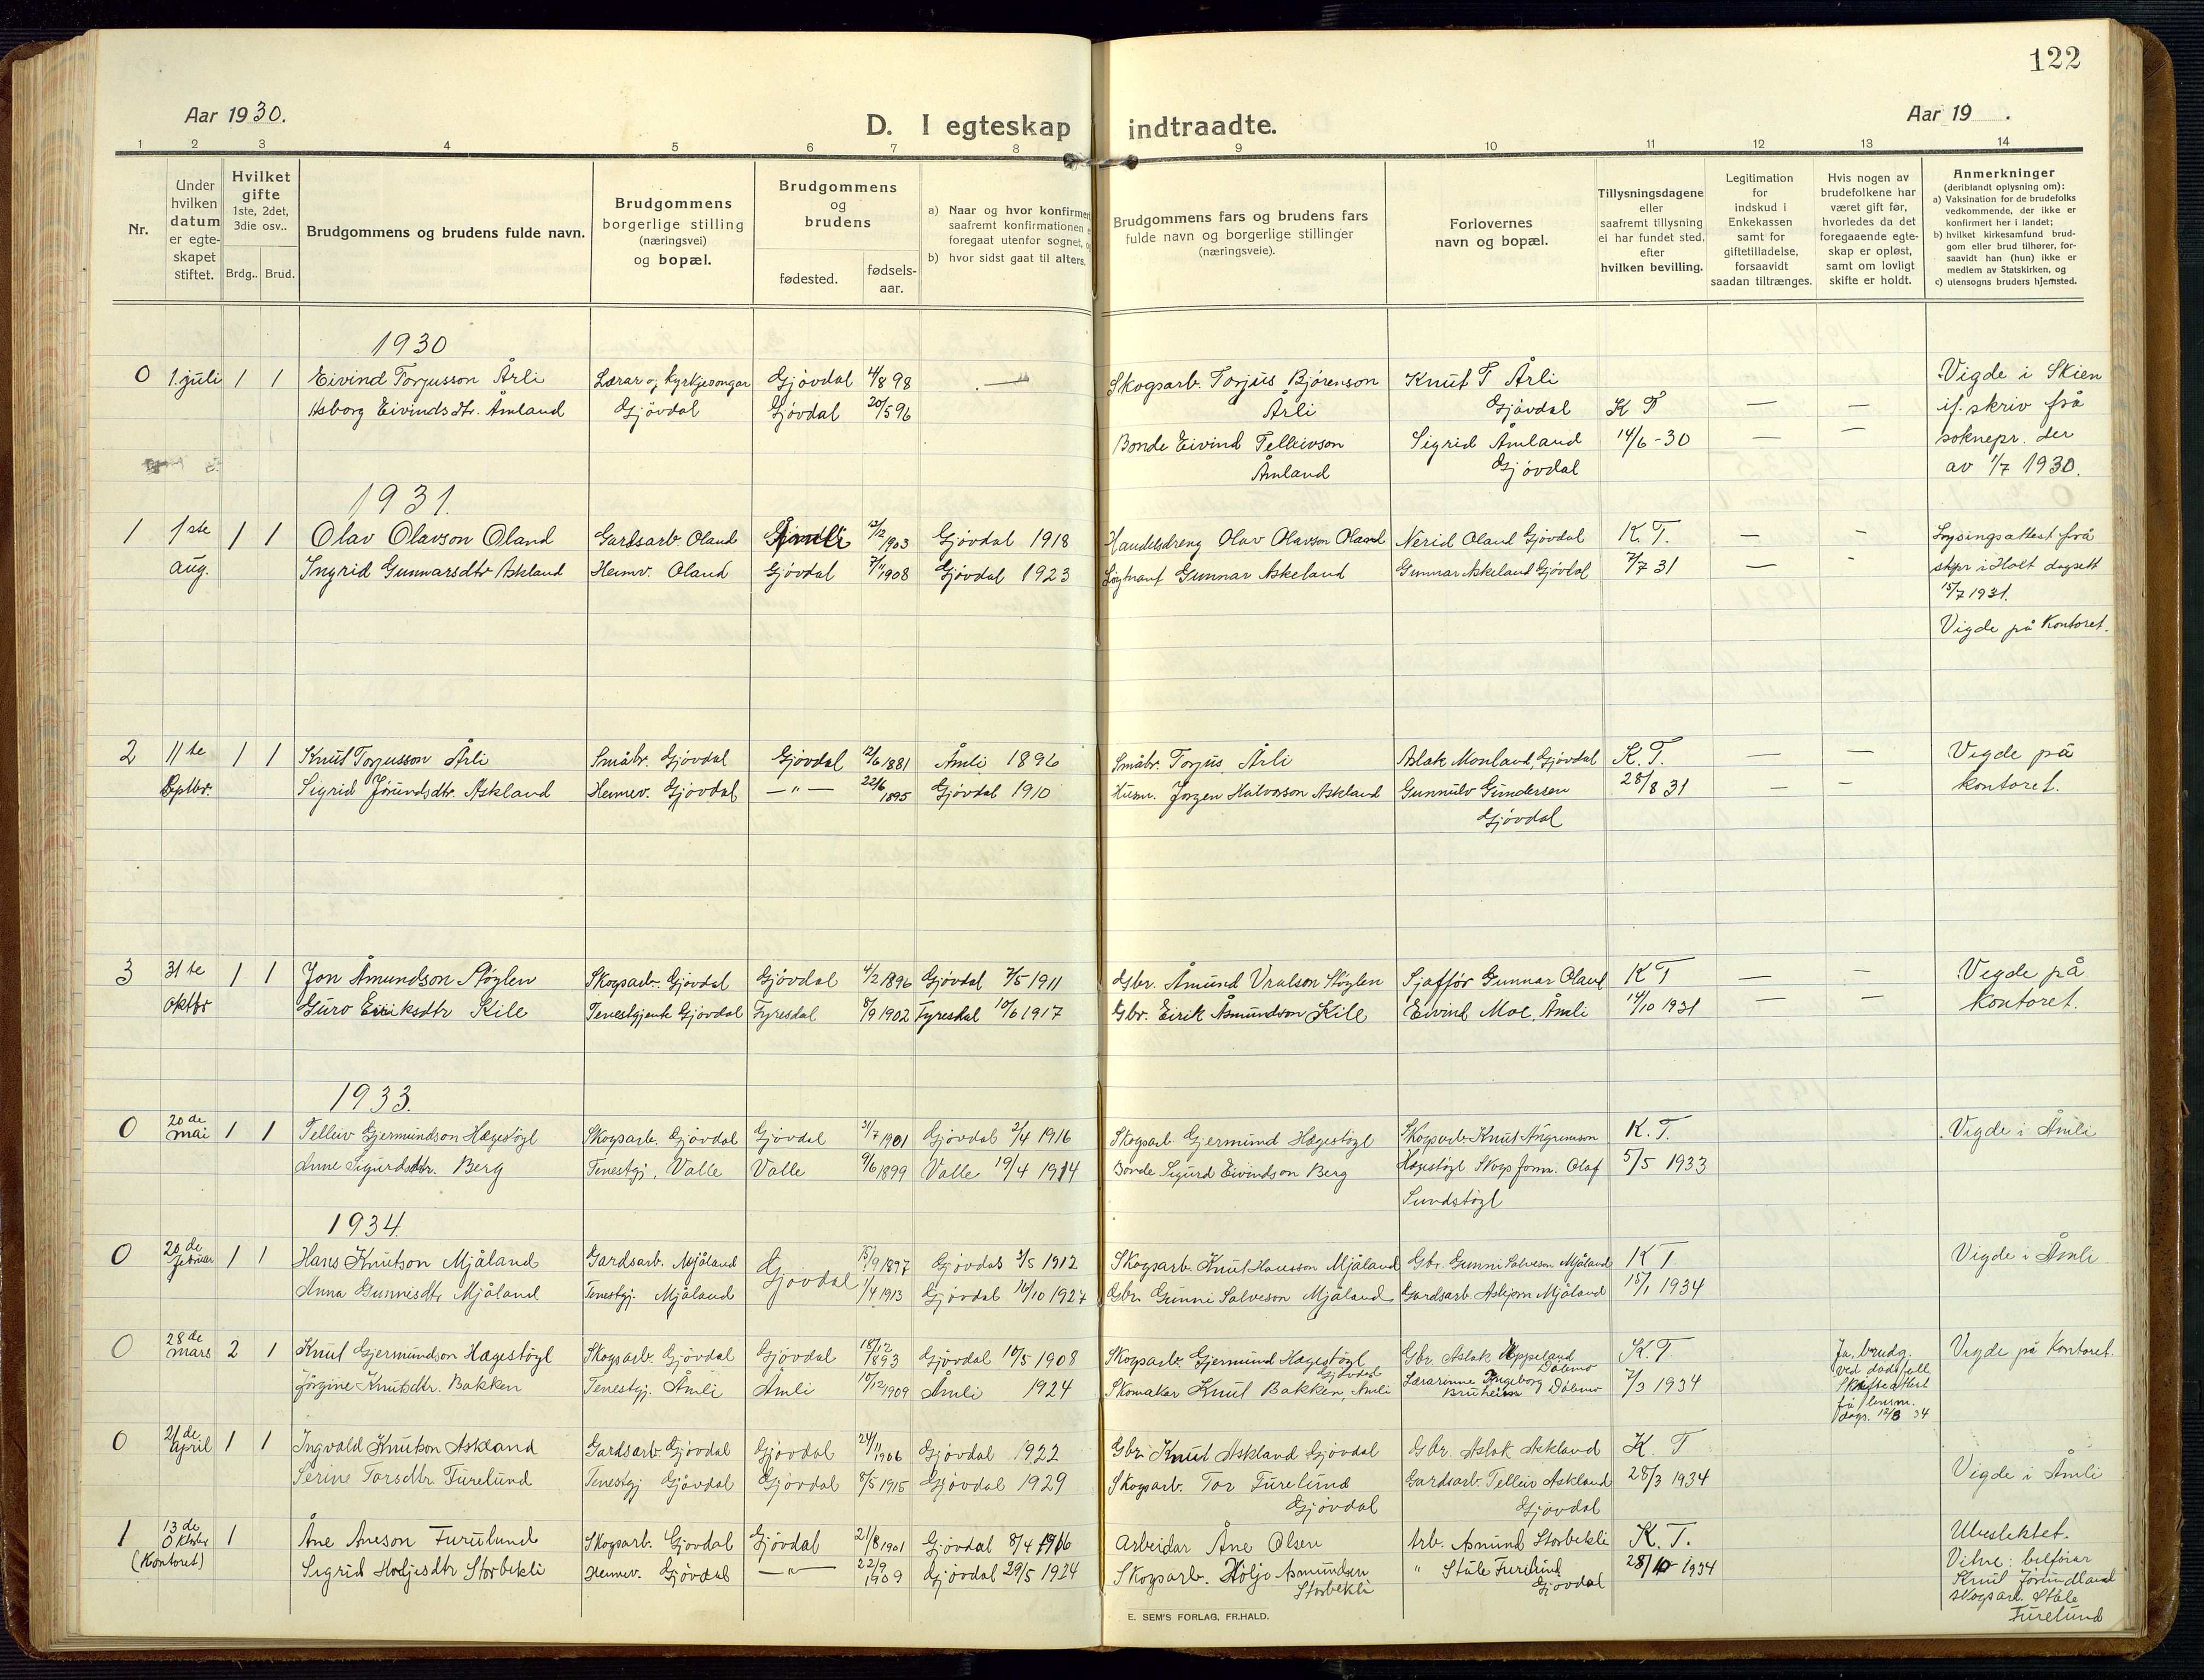 122
Aar 1930.
D. I egteskap indtraadte.
Aar 19 .
1 2 3 4 5 6 7 8 9 10 11 12 13 14
Nr.
Under hvilken datum er egte-skapet stiftet.
Hvilket gifte 1ste, 2det, 3die osv..
Brdg.. Brud.
Brudgommens og brudens fulde navn.
Brudgommens borgerlige stilling (næringsvei) og bopæl.
Brudgommens og brudens
fødested.
fødsels-aar.
a) Naar og hvor konfirmert
saafremt konfirmationen
foregaat utenfor sognet,
b) hvor sidst gaat til alters.
Brudgommens fars og brudens fars
fulde navn og borgerlige stillinger
(næringsveie).
Forlovernes
navn og bopæl.
Tillysningsdagene
eller
saafremt tillysning
ei har fundet sted,
efter
hvilken bevilling.
Legitimation
for
indskud i
Enkekassen
samt for
giftetilladelse,
forsaavidt
saadan tiltrænges.
Hvis nogen av
brudefolkene har
været gift før,
hvorledes da det
foregaaende egte-
skap er opløst,
samt om lovligt
skifte er holdt.
Anmerkninger
(deriblandt oplysning om):
a) Vaksination for de brudefolks
vedkommende, der ikke er
konfirmert her i landet;
b) hvilket kirkesamfund brud-
gom eller brud tilhører, for-
saavidt han (hun) ikke er
medlem av Statskirken, og
c) utensogns bruders hjemsted.
1930
0 1. juli 1 1 Eivind Torjusson Årli Lærar og kyrkjesongar Gjövdal 4/8 98 — Skogsarb. Torjus Bjørenson Knut T Årli Vigde i Skien
Asborg Eivindsdtr. Åmland Gjövdal Gjövdal 20/5 96 Årli Gjövdal K T — — if. skriv frå
Bonde Eivind Telleivson Sigrid Åmland 14/6-30 — — soknepr. der
Åmland Gjövdal av 1/7 1930.
1931.
1 1ste 1 1 Olav Olavson Oland Gardsarb. Oland Åmli 12/12 1903 Gjövdal 1918 Handelsdreng Olav Olavson Oland Nerid Oland Gjövdal K. T. — — Lysingsattest frå
aug. Ingrid Gunnarsdtr Askland Heimv. Oland Gjövdal 7/11 1908 Gjövdal 1923 Gunnar Askeland Gunnar Askeland Gjövdal 7/7 31 — - i Holt dagsett
15/7 1931.
Vigde på Kontoret.
2 11te 1 1 Knut Torjusson Årli Småbr. Gjövdal Gjövdal 12/6 1881 Åmli 1896 Småbr. Torjus Årli Aslak Monland, Gjövdal K. T. — — Vigde på
Septbr. Sigrid Jörundsdtr. Askland Heimev. Gjövdal —"— 22/6 1895 Gjövdal 1910 Husm. Jørgen Halvorson Askland Gunnulv Gundersen 28/8 31 — — kontoret.
Gjövdal
3 31te 1 1 Jon Åmundson Støylen Skogsarb. Gjövdal Gjövdal 4/2 1896 Gjövdal 7/5 1911 Gbr. Åmund Vralson Støylen Sjåffør Gunnar Oland K T — — Vigde på
oktbr Guro Eiriksdtr Kile Tenestgjente Gjövdal Fyresdal 8/9 1902 Fyresdal 10/6 1917 Gbr. Eirik Åsmundson Kile Eivind Moe, Åmli 14/10 1931 — — Kontoret.
1933.
0 20de mai 1 1 Telleiv Gjermundson Hægestøyl Skogsarb. Gjövdal Gjövdal 31/7 1901 Gjövdal 2/4 1916 Skogsarb Gjermund Hægestøyl Skogsarb Knut Ångrimson K. T. Vigde i Åmli
Anne Sigurdsdtr. Berg Tenestgj. Valle Valle 9/6 1899 Valle 19/4 1914 Bonde Sigurd Eivindson Berg Hægestøyl Skogsform. Olaf 5/5 1933
Sundstøyl
1934.
0 20de februar 1 1 Hans Knutson Mjåland Gardsarb. Mjåland Gjövdal 15/9 1897 Gjövdal 5/5 1912 Skogsarb. Knut Hansson Mjåland Gbr. Gunni Salveson Mjåland K T. Vigde i Åmli
Anna Gunnisdtr Mjåland Tenestgj. Mjåland 1/4 1913 Gjövdal 16/10 1927 Gbr. Gunni Salveson Mjåland Gardsarb. Asbjørn Mjåland 15/1 1934
0 28de mars 2 1 Knut Gjermundson Hægestøyl Skogsarb. Gjövdal Gjövdal 18/12 1893 Gjövdal 10/5 1908 Skogsarb. Gjermund Hægestøyl Gjövdal Gbr. Aslak Uppeland Dølemo K. T Ja, brudg. Vigde på Kontoret.
Jörgine Knutsdtr. Bakken Tenestgj. Åmli Åmli 10/12 1909 Åmli 1924 Skomakar Knut Bakken, Åmli Lærarinne Ingeborg Bruheim Dølemo 7/3 1934 ved dødsfall
Skifteattest
frå lensm.
dags. 12/3 34
0 21de april 1 1 Ingvald Knutson Askland Gardsarb. Gjövdal Gjövdal 24/11 1906 Gjövdal 1922 Gbr. Knut Askland Gjövdal Gbr. Aslak Askland K. T
Serine Torsdtr Furelund Tenestgj Gjövdal Gjövdal 8/5 1915 Gjövdal 1929 Skogsarb. Tor Furelund Gardsarb. Telleiv Askland 28/3 1934 Vigde i Åmli
Gjövdal Gjövdal
1 13de Oktbr 1 Åne Aneson Furulund Skogsarb. Gjövdal Gjövdal 21/8 1901 Gjövdal 8/4 1916 Arbeidar Åne Olsen Arb. Åmund Storbekli K. T. Ubeslektet.
(Kontoret) Sigrid Holjesdtr Storbekli Heimev. Gjövdal —"— 22/9 1909 Gjövdal 29/5 1924 Skogsarb. Höljo Asmundsen " Ståle Furelund 28/10-1934 Vitne: bilförar
Storbekli Gjövdal Knut Jörundland
skogsarb. Ståle
Furelund
E. SEM'S FORLAG, FR.HALD.